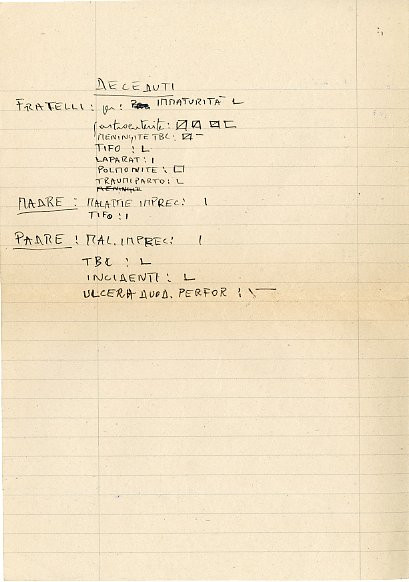 DECEDUTI
FRATELLI: per: IMMATURITÀ L
gastroenterite:
MENINGITE TBC:
TIFO: L
LAPARAT: I
POLMONITE: □
TRAUMI PARTO: L
MADRE: MALATTIE IMPREC: I
TIFO: I
PADRE: MAL. IMPREC: I
TBC: L
INCIDENTI: L
ULCERA DUOD. PERFOR: